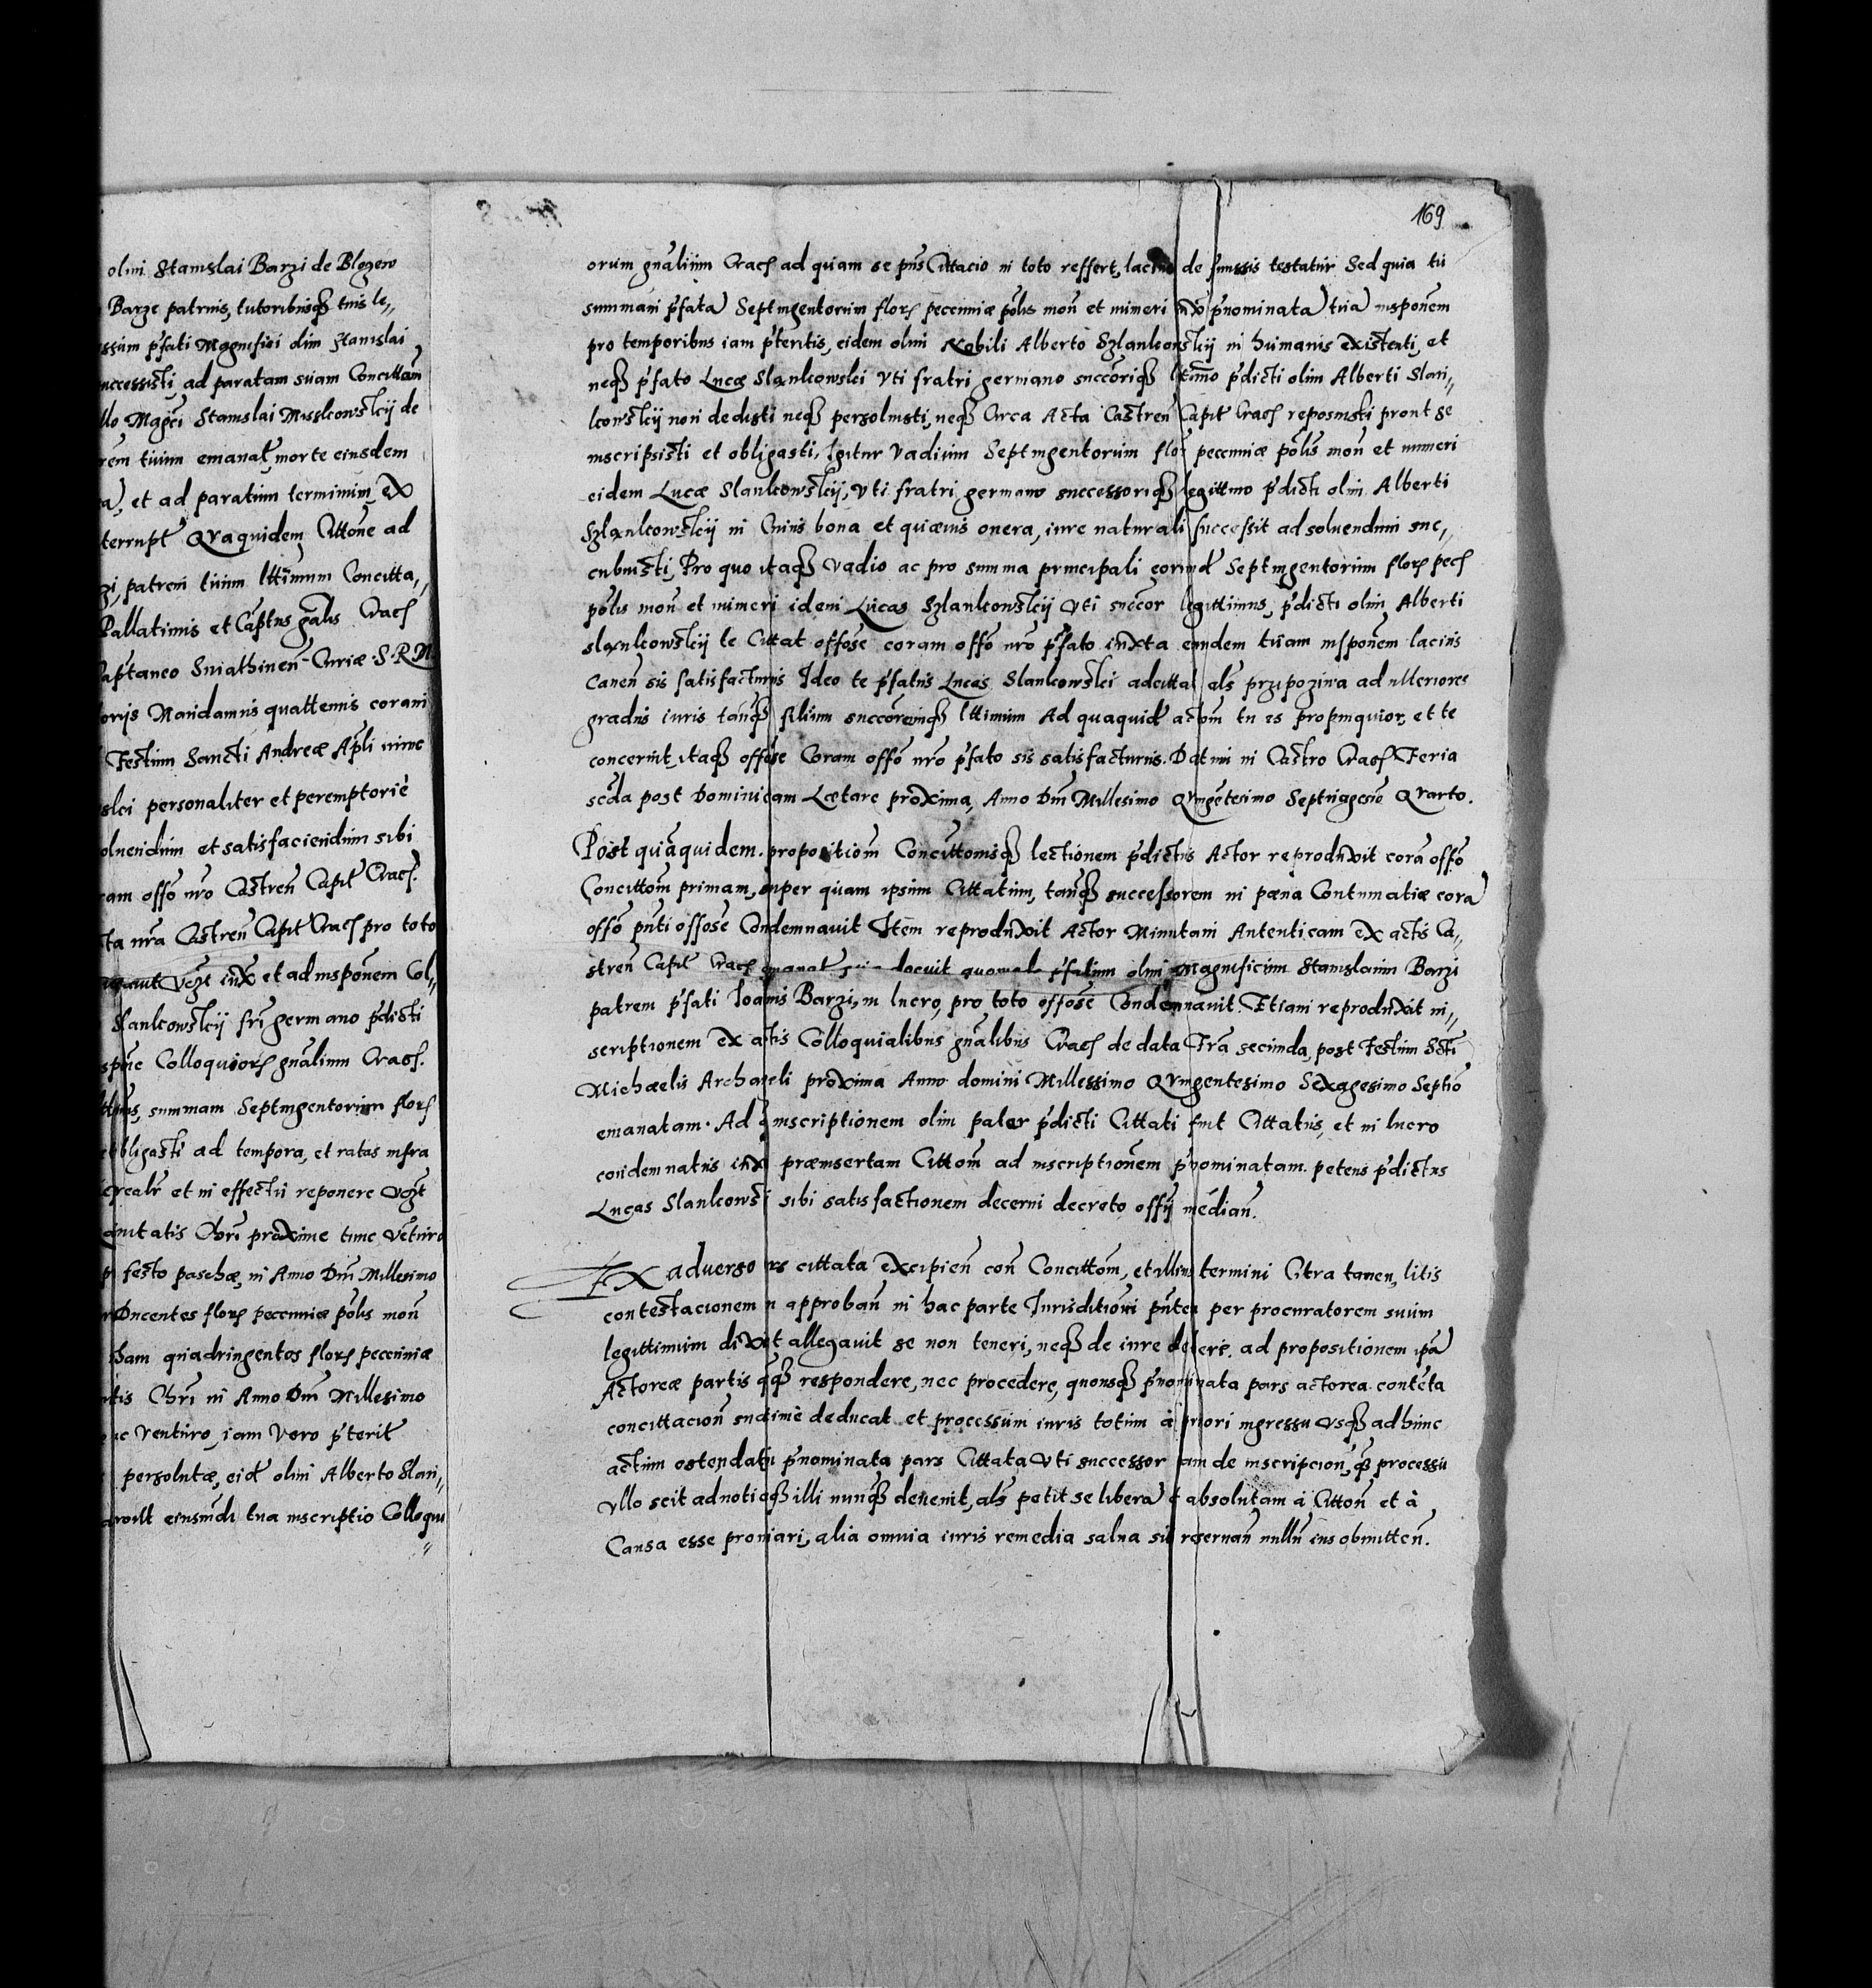 olim Stanislai Barzi de Blozew
Barze patruis, tutoribusq3 tuis le„
ssum p̃fati Magnifici olim Stanislai
uccessisti, ad paratam suam Concittam
llo Mag̃ci Stanislai Misskowskij de
rem tuum emanat̃, morte eiusdem
a, et ad paratum terminum, ex
terrupt̃ Qvaquidem Cittõne ad
zi, patrem tuum l̃ttimum Concitta„
Pallatinus et Cap̃tus g̃nalis Crac̃
apitaneo Sniathineñ Curiæ S. R. M.
orijs Mandamus quattenus coram
Festum Sancti Andreæ Ap̃li nunc
slei personaliter et peremptoriè
oluendum et satisfaciendum sibi
ram offo nr̃o Castreñ Capit̃ Crac̃.
ta nr̃a Castreñ Capit̃ Crac̃ pro toto
et ad insponem Col„
Slankowskij fr̃i germano p̃dicti
Colloquior̃ gñalium Crac̃.
summam Septingentorum flor̃
obligasti ad tempora, et ratas infra
realr̃ et in effectu reponere
nitatis Chr̃i proxime tunc venturo
festo paschæ, in Anno Dñi Millesimo
Ducentos flor̃ pecuniæ pol̃is moñ
quadringentos flor̃ pecuniæ
tis Chr̃i in Anno Dñi Millesimo
uc venturo, iam vero p̃terit̃
persolutæ, eid̃ olim Alberto Slan„
eiusm̃di tua inscriptio Colloqui
„
169
orum gñalium Crac̃ ad quam se pñs Cittacio in toto reffert, lacius de sumssis testatur Sed quia tu
summam p̃fata Septingentorum flor̃ pecuniæ pol̃is moñ et numeri iux̃ p̃nominata tua insponem
pro temporibus iam p̃teritis, eidem olim Nobili Alberto Szlankowskij in humanis existenti, et
neq3 p̃fato Lucæ Slankowski vti fratri germano succõriq3 l̃timo p̃dicti olim Alberti Slan„
kowskij non dedisti neq3 persoluisti, neq3 Circa Acta Castreñ Capit̃ Crac̃ reposuisti pront se
inscripsisti et obligasti. Igitur Vadium Septingentorum flor̃ pecuniæ pol̃is moñ et numeri
eidem Lucæ Slankowskij, vti fratri germano successoriq3 legittimo p̃dicti olim Alberti
Szlankowskij in Cuius bona et quævis onera, iure naturali successit ad soluendum suc„
cubuisti, Pro quo itaq3 vadio ac pro summa principali eorund̃ Septingentorum flor̃ pec̃
pol̃is moñ et numeri idem Lucas Szlankowskij vti succor legittimus, p̃dicti olim Alberti
slankowskij te Cittat offose coram offo nr̃o p̃fato iuxta eandem tuam insponem lacius
Caneñ sis satisfacturus Ideo te p̃fatus Lucas Slankowski adcittat al̃s przipoziwa ad ulteriores
gradus iuris tanq3 filium succoremq3 l̃ttimum Ad quaquid̃ actom tu es propinquior, et te
concernit, itaq3 offose Coram offo nr̃o p̃fato sis satisfacturus. Datum in Castro Crac̃ Feria
scda post Dominicam Lætare proxima, Anno Dñi Millesimo Qvingetesimo Septuagesio Qvarto.
Post quãquidem. propositiom Concittomisq3 lectionem p̃dictus Actor reproduxit corã offo
Concittom primam, super quam ipsum Cittatum, tanq3 successorem in pæna Contumatiæ cora
offo pñti offose Condemnauit Item reproduxit Actor Minutam Autenticam ex actis Ca„
streñ Capit̃ Crac̃ emanat̃ docuit quomodo p̃fatum olim Magnificum Stanislaum Barzi
patrem p̃fati Ioanis Barzi, in lucro, pro toto offose Condemnauit. Etiam reproduxit in„
scriptionem ex actis Colloquialibus gñalibus Crac̃ de data Fr̃a secunda, post Festum Scti
Michaelis Archaneli proxima Anno domini Millessimo Qvingentesimo Sexagesimo Septio
emanatam. Ad q̃ inscriptionem olim pater p̃dicti Cittati fuit Cittatus, et in lucro
condemnatus iux̃ præinsertam Cittom ad inscriptionem p̃nominatam. petens p̃dictus
Lucas Slankowski sibi satisfactionem decerni decreto offij median̄.
Ex aduerso rs cittata excipieñ coñ Concittom, et illius termini Citra tamen, litis
contestacionem n approbañ in hac parte Iurisdictioni pñter per procuratorem suum
legittimum dixit allegauit se non teneri, neq3 de iure debere. ad propositionem ip̃a
Actoreæ partis q̃q3 respondere, nec procedere, quousq3 p̃nominata pars actorea contẽta
concittacioñ deducat et processum iuris totum à priori ingressu vsq3 ad hunc
actum ostendat p̃nominata pars Cittata vti successor tam de inscripcioñ, q̃3 processu
vllo scit ad notiaq3 illi nunq3 deuenit, al̃s petit se libera et absolutam à Cittoñ et à
Causa esse pronunciari, alia omnia iuris remedia salua sibi reseruañ nullũ ius obmitteñ.